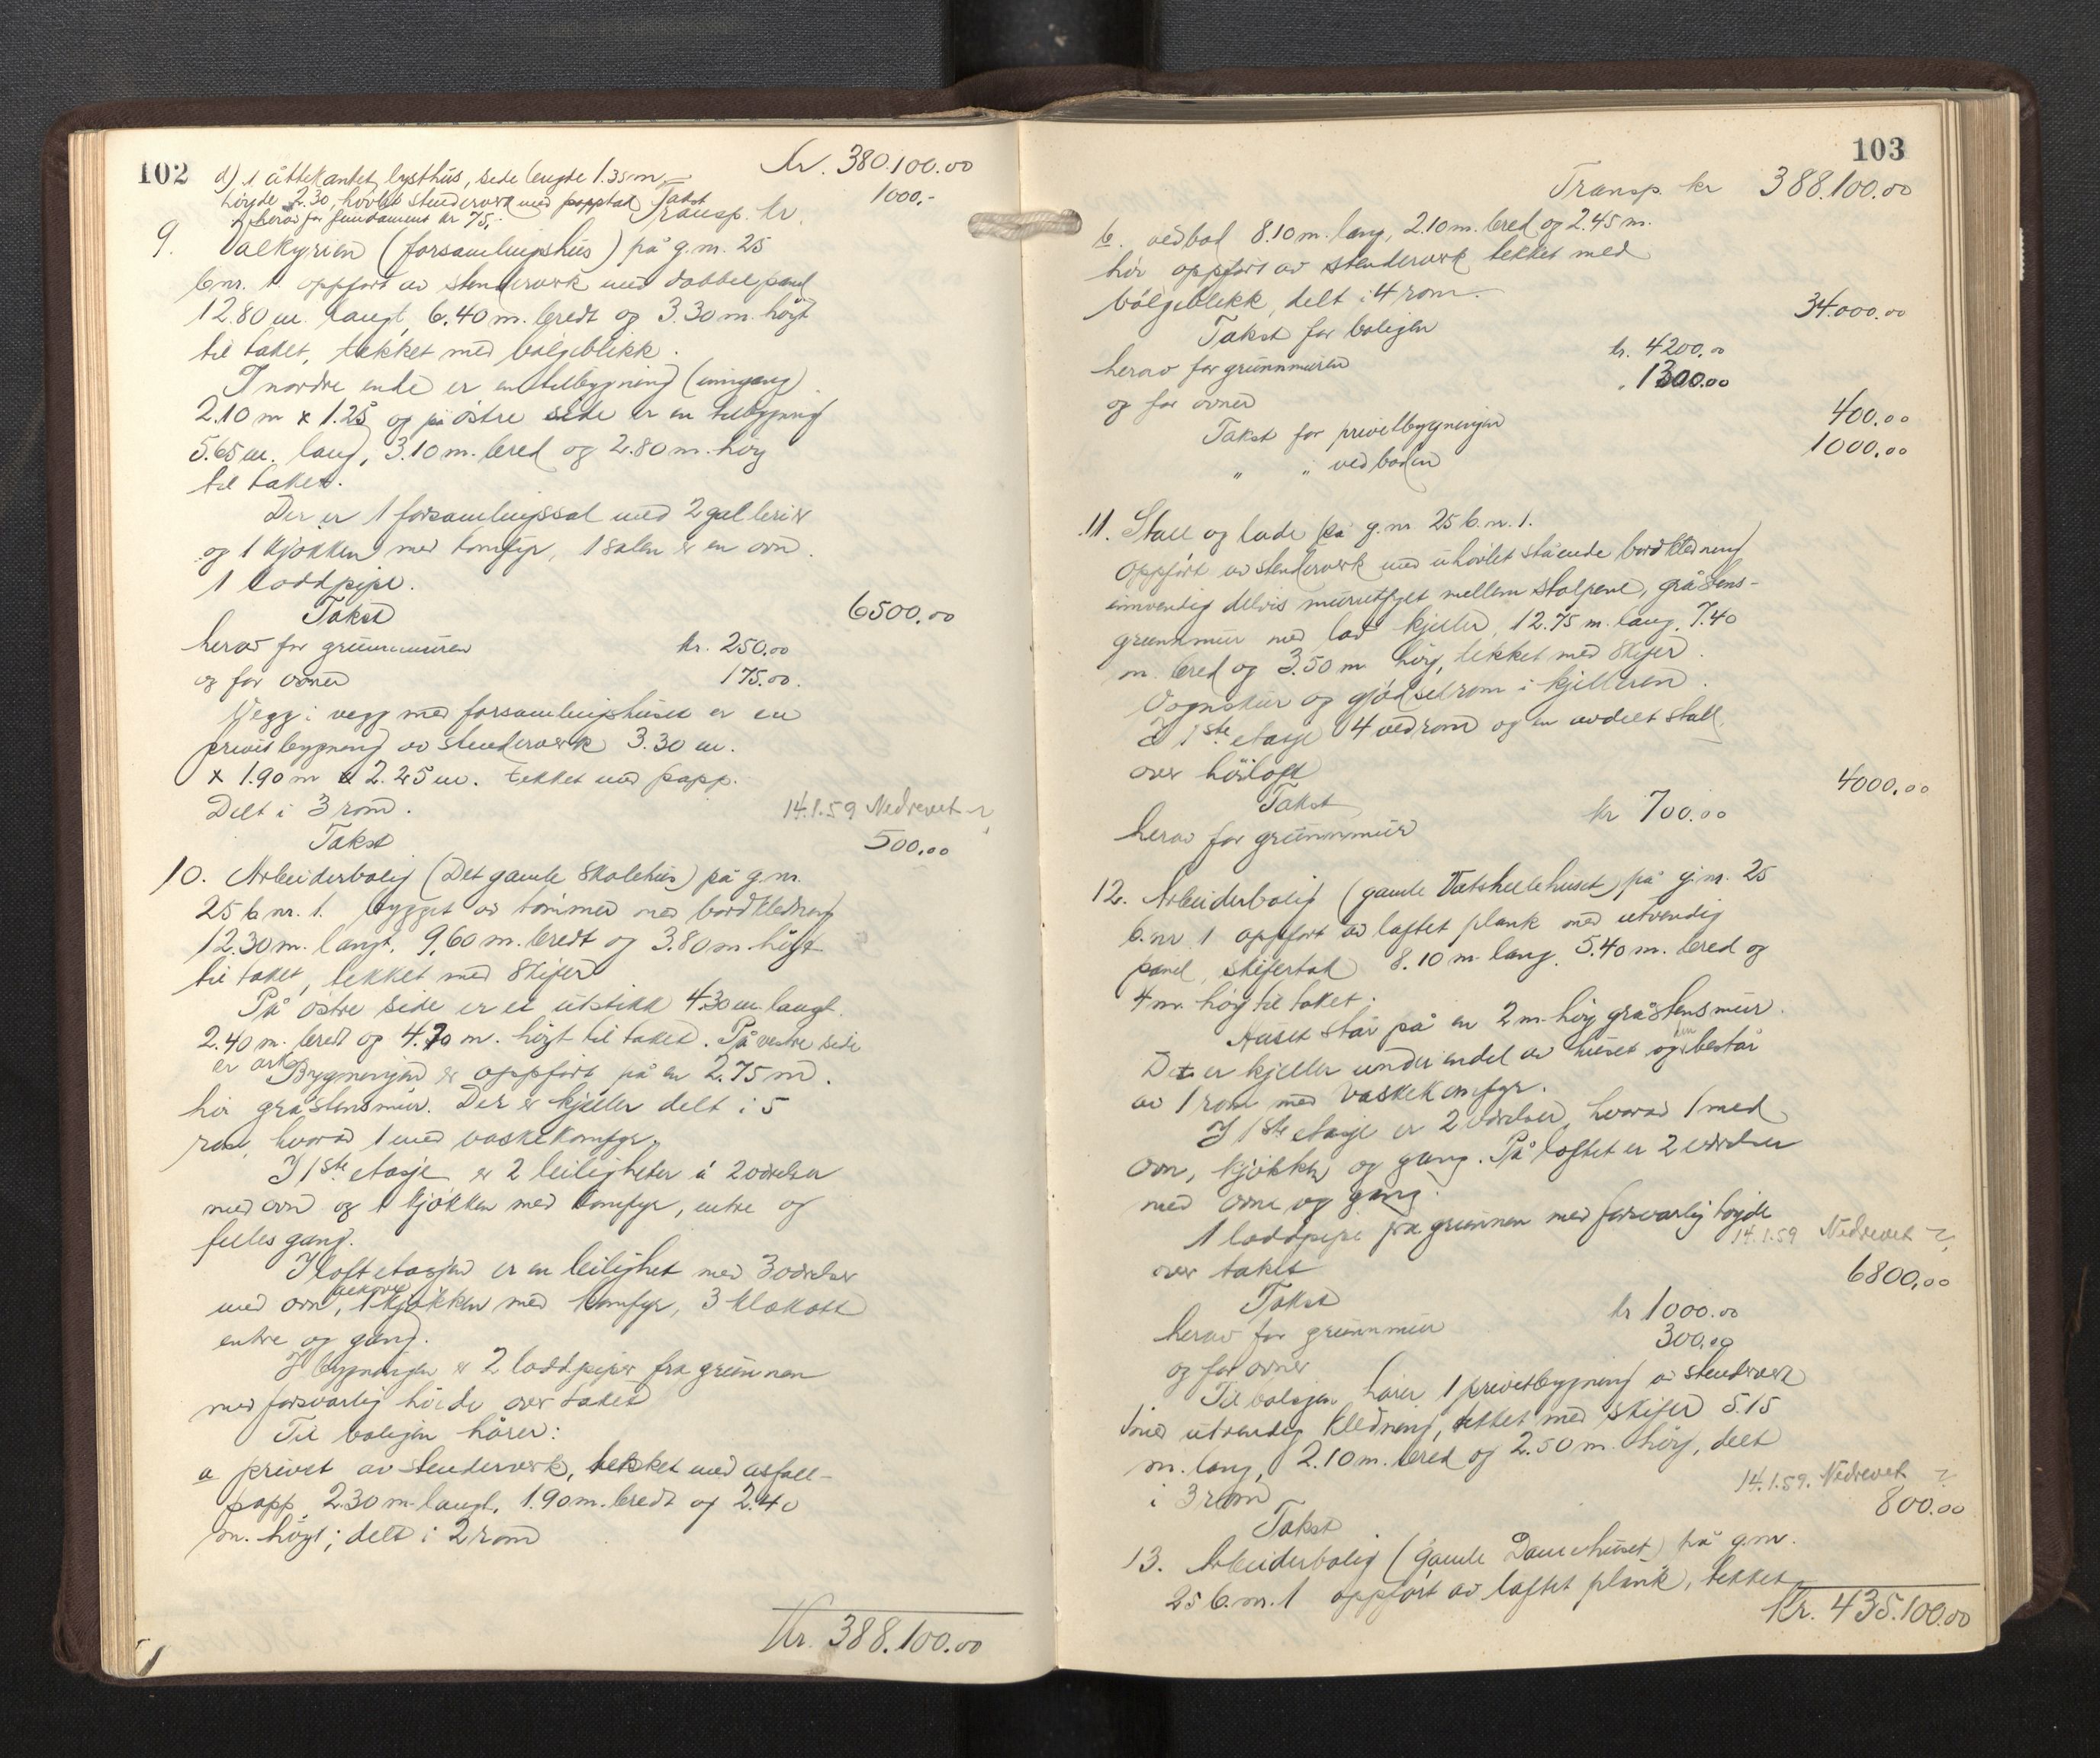 102
d) 1 åttekantet lysthus, side lengde 1.35 m,
høyde 2.30, høvlet stenderverk med papptak Takst
herav for fundament kr 75,-
Kr. 380.100.00
1000,-
Transp. kr.
9. Valkyrien (forsamlingshus) på g.nr. 25
b.nr. 1. oppført av stenderverk med dobbelpanel
12.80 m. langt, 6.40 m. bredt og 3.30 m. høyt
til taket, tekket med bølgeblikk.
I nordre ende er en tilbygning (inngang)
2.10 m x 1.25 og på østre side er en tilbygning
5.65 m. lang, 3.10 m. bred og 2.80 m. høy
til taket.
Der er 1 forsamlingssal med 2 gallerier
og 1 kjøkken med komfyr, i salen er en ovn.
1 loddpipe.
Takst 6500,00
herav for grunnmuren kr. 250.00
og for ovner 175.00.
Vegg i vegg med forsamlingshuset er en
privetbygning av stenderverk 3.30 m.
x 1.90 m x 2.25 m. tekket med papp.
Delt i 3 rom.
14.1.59 Nedrevet
Takst 500,00
10. Arbeiderbolig (Det gamle skolehus) på g.nr.
25 b.nr. 1. bygget av tømmer med bordkledning
12.30 m. langt, 9,60 m. bredt og 3.80 m. høyt
til taket, tekket med skifer
På østre side er et utstikk 4.30 m. langt.
2.40 m. bredt og 4.70 m. høyt til taket. På vestre side
er ark. Bygningen er oppført på en 2.75 m.
høi gråstensmur. Der er kjeller delt i 5
rom, hvorav 1 med vaskekomfyr.
I 1ste etasje er 2 leiligheter á 2 værelser
med ovn og 1 kjøkken med komfyr, entre og
felles gang.
I loftetasjen er en leilighet med 3 værelser
med ovn, 1 kjøkken med komfyr, 3 klokott
entre og gang.
I bygningen er 2 loddpiper fra grunnen
med forsvarlig høide over taket
Til boligen hører:
a privet av stenderverk, tekket med asfalt-
papp 2.30 m. langt, 1.90 m. bredt og 2.40
m. høyt; delt i 2 rom
Kr. 388.100.00
103
Transp. kr 388.100.00
b. vedbod 8.10 m. lang, 2.10 m. bred og 2.45 m.
høi oppført av stenderverk tekket med
bølgeblikk, delt i 4 rom.
Takst for boligen 34.000.00
herav for grunnmuren kr. 4200.00
og for ovner " 1300.00
Takst for privetbygningen 400.00
" " vedboden 1000.00
11. Stall og lade på g.nr 25 b.nr. 1.
oppført av stenderverk med uhøvlet stående bordkledning
innvendig delvis murutfyllt mellem stolpene, gråstens-
grunnmur med lav kjeller, 12.75 m. lang, 7.40
m. bred og 3.50 m høy, tekket med skifer.
Vognskur og gjødselrom i kjelleren.
I 1ste etasje 4 vedrom og en avdelt stall,
over höiloft
Takst 4000.00
herav for grunnmur kr 700.00
12. Arbeiderbolig (gamle Vatshellehuset) på g.nr. 25
b.nr 1 oppført av laftet plank med utvendig
panel, skifertak 8.10 m. lang, 5.40 m. bred og
4 m. høy til taket.
Huset står på en 2 m. høy gråstensmur.
Det er kjeller under endel av huset og den består
av 1 rom med vaskekomfyr.
I 1ste etasje er 2 værelser, hvorav 1 med
ovn, kjøkken og gang. På loftet er 2 værelser
med ovn og gang.
1 loddpipe fra grunnen med forsvarlig høyde
over taket
14.1.59 Nedrevet
Takst 6800,00
herav for grunnmur kr 1000.00
og for ovner 300.00
Til boligen hører 1 privetbygning av stenderverk
med utvendig kledning, tekket med skifer 5.15
m. lang, 2.10 m. bred og 2.50 m. høy, delt
i 3 rom
14.1.59. Nedrevet
Takst 800.00
13. Arbeiderbolig (gamle Damhuset) på g.nr.
25 b.nr. 1 oppført av laftet plank, tekket
Kr. 435.100.00